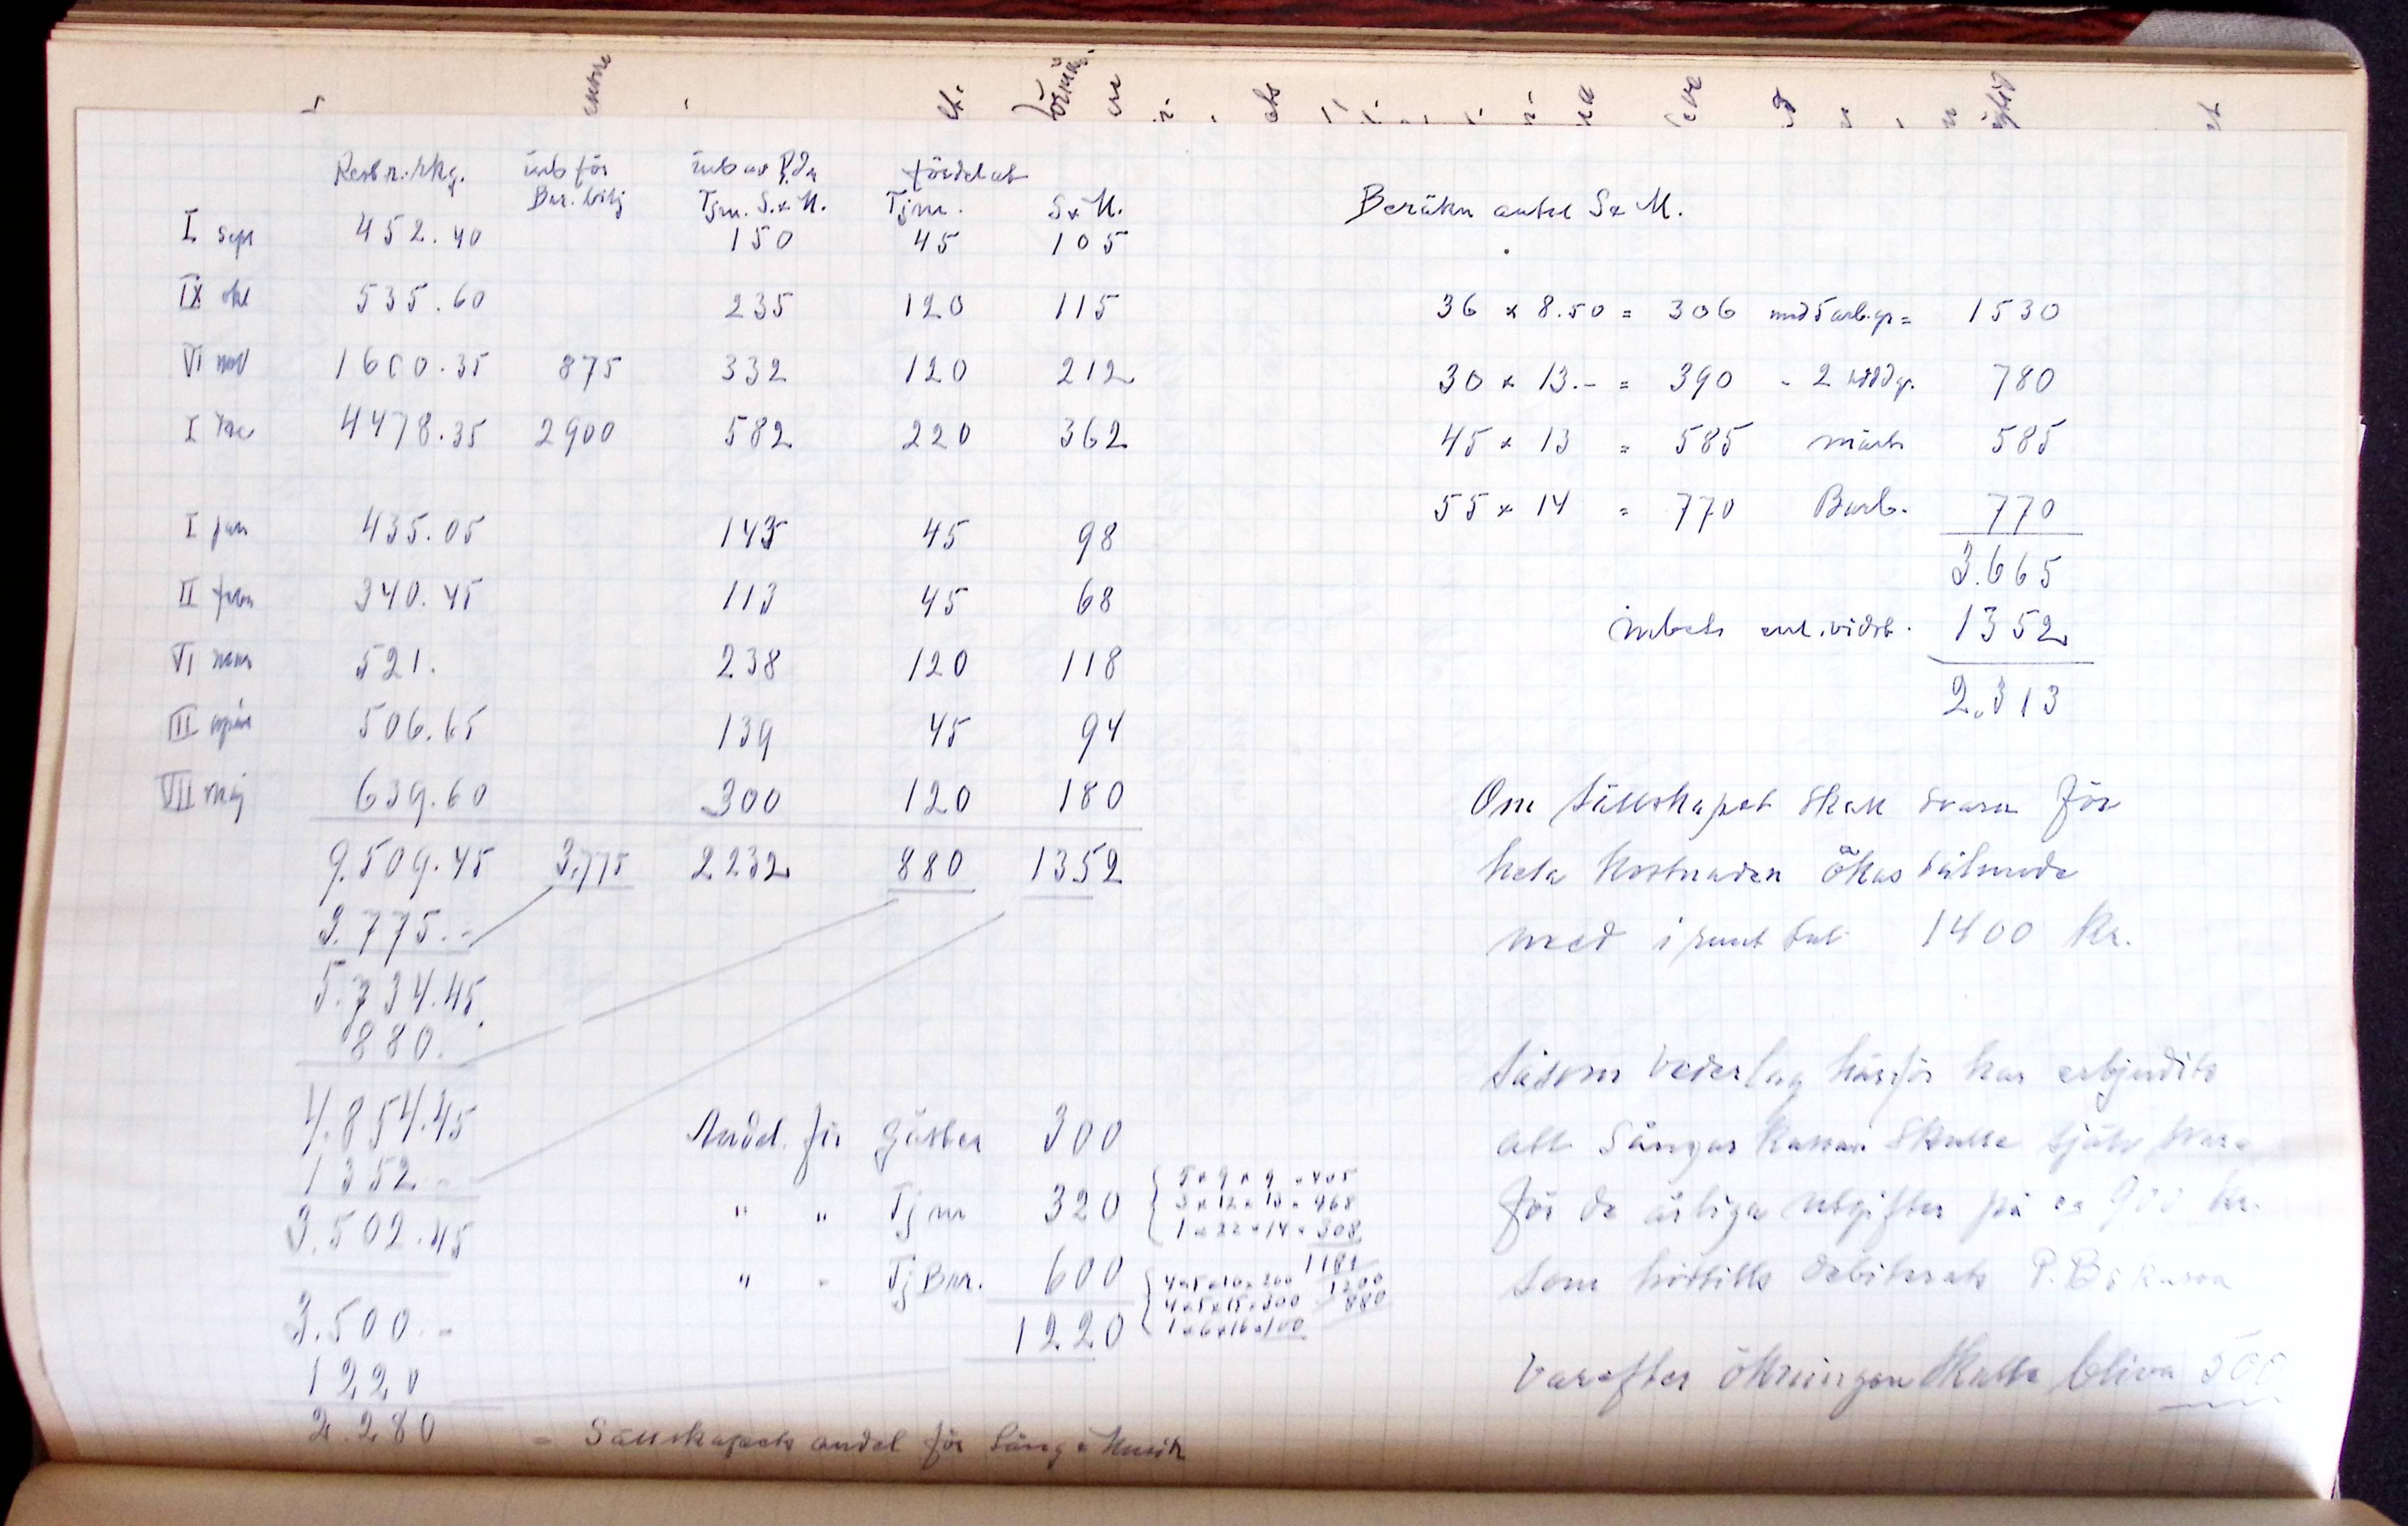 inb för inb av
fördelat
Tjm. S.&M. Tjm. S&M.
I sept 452.40 150 45 105
IX okt 535.60 235 120 115
VI nov 1600.35 875 332 120 212
I 4478.35 2900 582 220 362
I jan 435.05 143 45 98
II febr 340.45 113 45 68
VI mars 521. 238 120 118
III april 506.65 139 45 94
VII maj 639.60 300 120 180
9.509.45 3.775 2232 880 1352
3.775.-
5.734.45
880.
4.854.45
1352.-
3.502.45
3.500.-
1220
2.280 = Sällskapets andel för Sång & Musik
Andel. för gäster 300
" " Tjm 320
" " Tj Bar. 600
1220
5×9×9=405
3×12×13=468
1×22×14=308
1181
4×5×10=200 1200
4×5×15=300 880
1×6×16=100
Beräkn antal S&M.
36 × 8.50 = 306 med 5 arb.gr = 1530
30 × 13.- = 390 - 2 780
45 × 13 = 585 585
55 × 14 = 770 Barb. 770
3.665
inbet. enl. vidst. 1352
2.313
Om Sällskapet skall svara för
hela kostnaden ökas således
med i runt tal 1400 kr.
Såsom vederlag härför har erbjudits
att Sångarkassan skulle själv svara
för de årliga utgifter på ca 900 kr.
som hittills debiterats P.B:s kassa
varefter ökningen skulle bliva 500